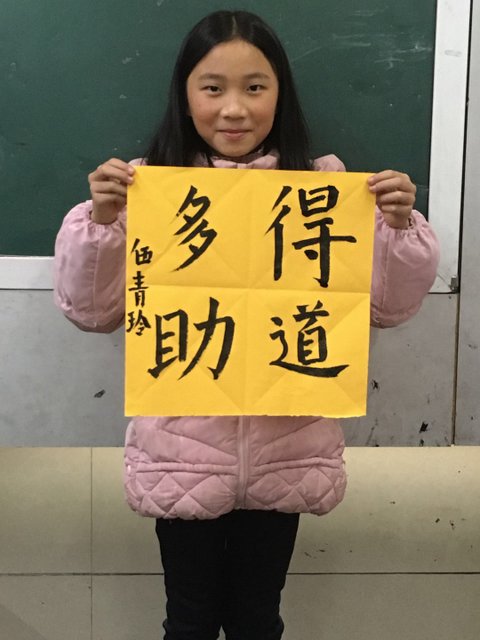 得道
多助
伍青玲